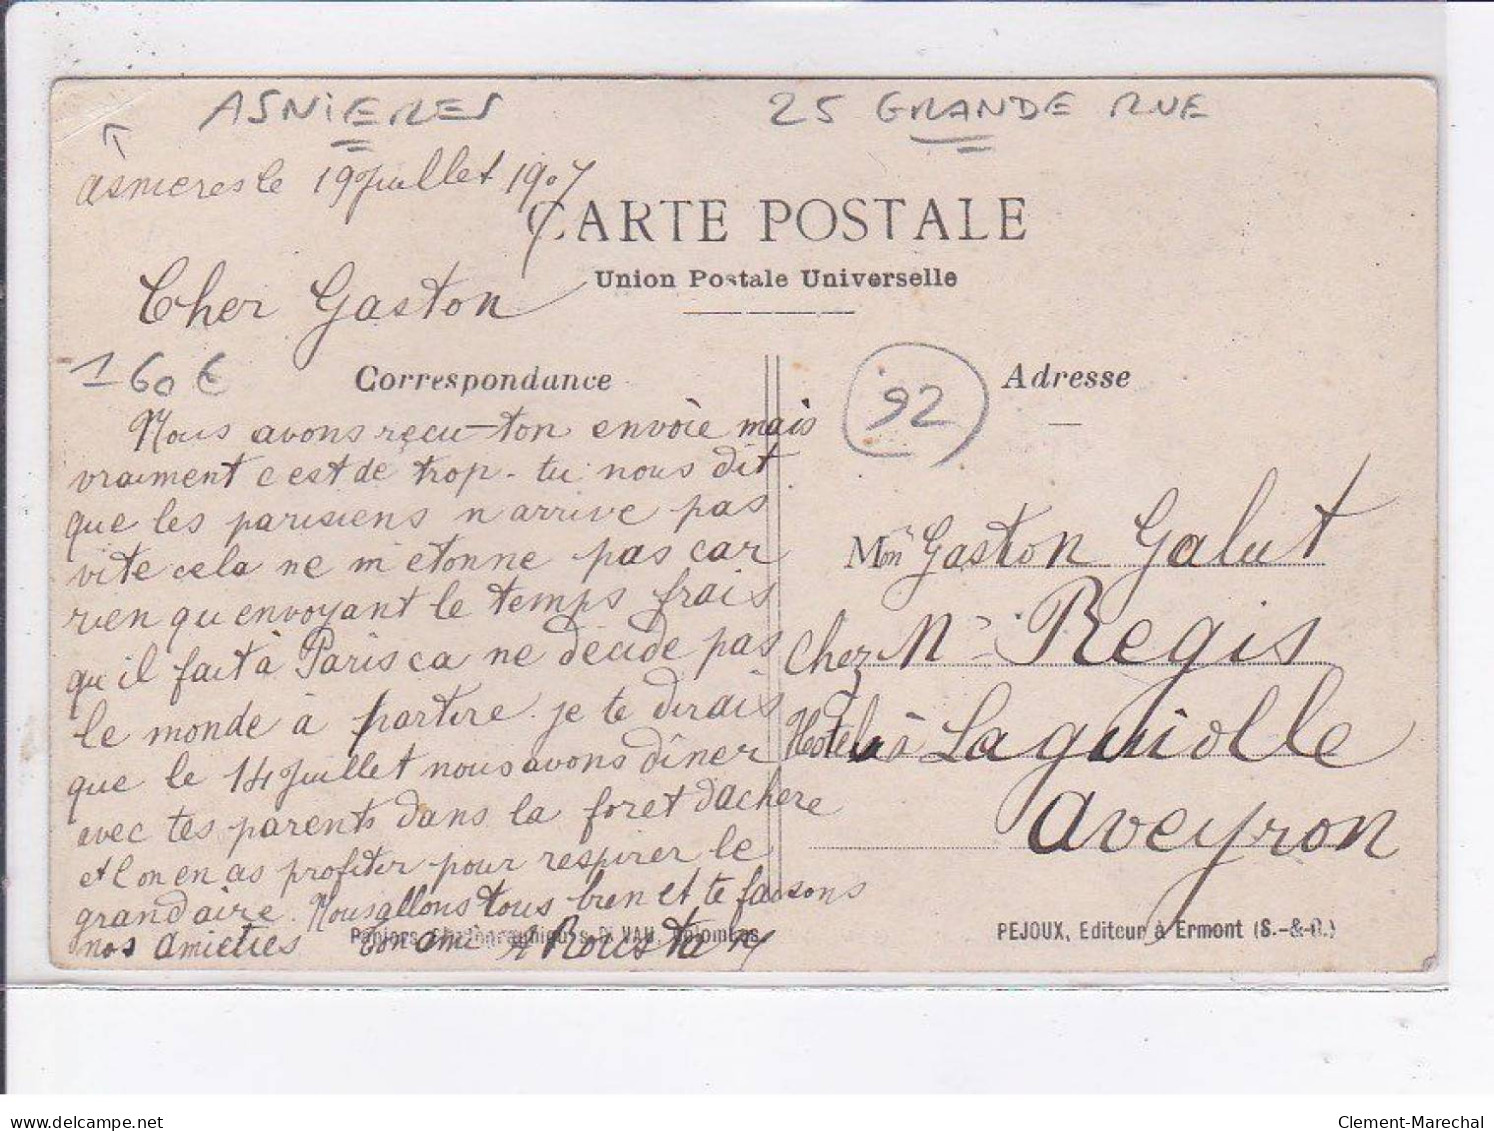 ASNIERES 25 GRANDE RUE
asnieres le 19 juillet 1907
CARTE POSTALE
Union Postale Universelle
Cher Gaston
160€
Correspondance
92
Adresse
Nous avons reçu ton envoie mais
vraiment c est de trop - tu nous dit
que les parisiens n arrive pas
vite cela ne m etonne pas car
rien qu envoyant le temps frais
qu il fait à Paris ca ne décide pas
le monde à partire. je te dirais
que le 14 juillet nous avons dîner
avec tes parents dans la foret dachere
et l on en as profiter pour respirer le
grand aire. Nous allons tous bien et te faisons
nos amieties Ton ami
Mon Gaston Galut
Chez Mr Regis
Hotel à Laguiolle
aveyron
PEJOUX, Editeur à Ermont (S.-&-O.)
delcampe.net
Clement-Marechal